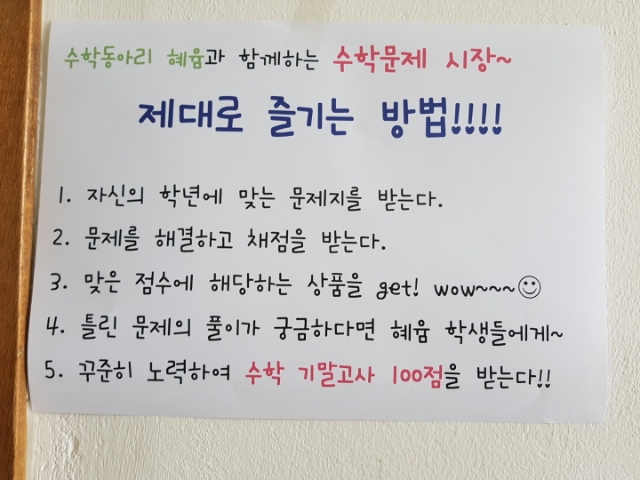 수학동아리 혜윰과 함께하는 수학문제 시장~
제대로 즐기는 방법!!!!
1. 자신의 학년에 맞는 문제지를 받는다.
2. 문제를 해결하고 채점을 받는다.
3. 맞은 점수에 해당하는 상품을 get! wow~~~☺
4. 틀린 문제의 풀이가 궁금하다면 혜윰 학생들에게~
5. 꾸준히 노력하여 수학 기말고사 100점을 받는다!!